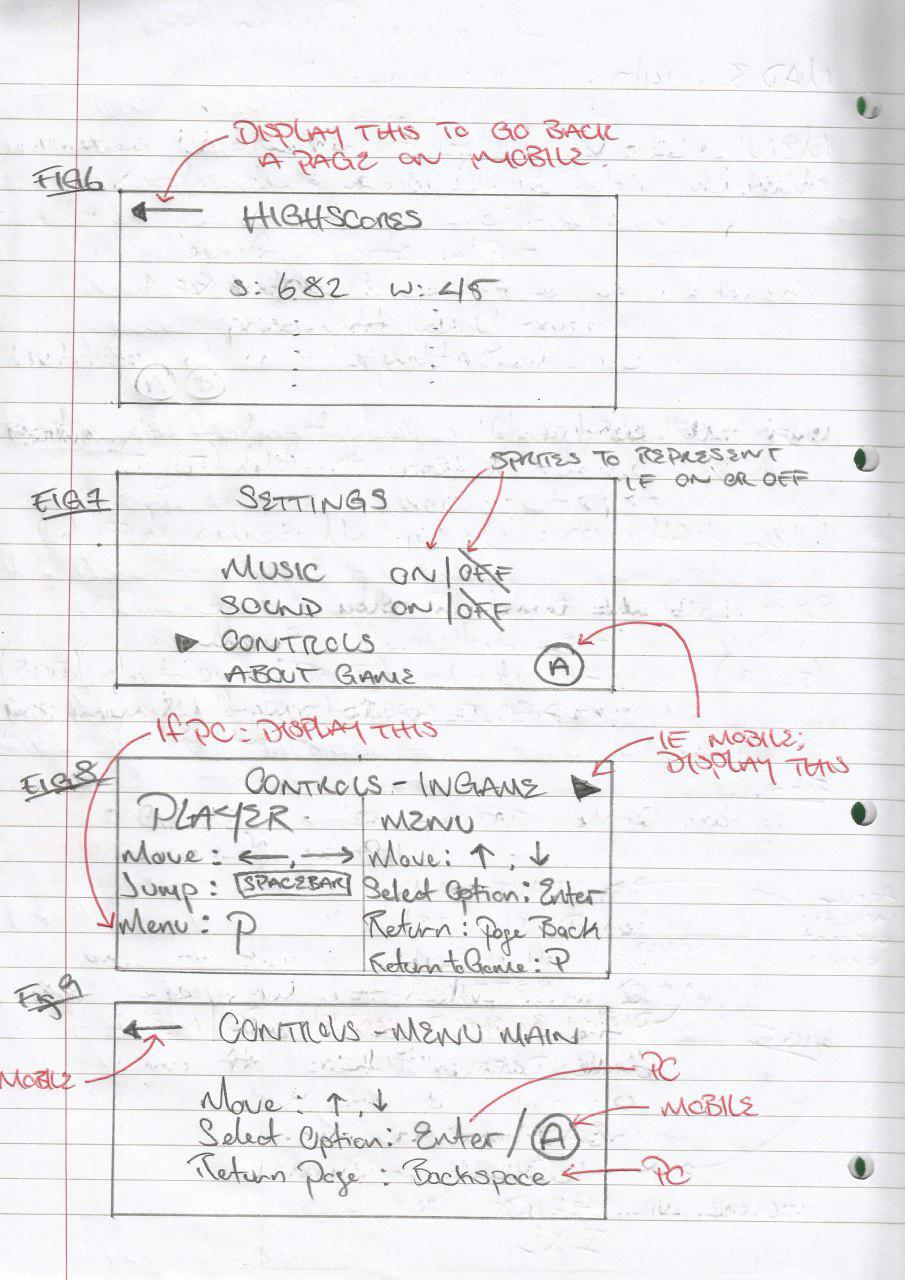 DISPLAY THIS TO GO BACK
A PAGE ON MOBILE.
FIG6
HIGHSCORES
S: 682 W: 45
FIG7
SPRITES TO REPRESENT
IF ON OR OFF
SETTINGS
MUSIC ON | OFF
SOUND ON | OFF
CONTROLS
ABOUT GAME
A
If PC: DISPLAY THIS
IF MOBILE;
DISPLAY THIS
FIG8
CONTROLS - INGAME
PLAYER
Move: ←, →
Jump: SPACEBAR
Menu: P
MENU
Move: ↑, ↓
Select Option: Enter
Return: Page Back
Return to Game: P
Fig 9
← CONTROLS - MENU MAIN
MOBILE
Move: ↑, ↓
Select Option: Enter / A
Return Page: Backspace
PC
MOBILE
PC